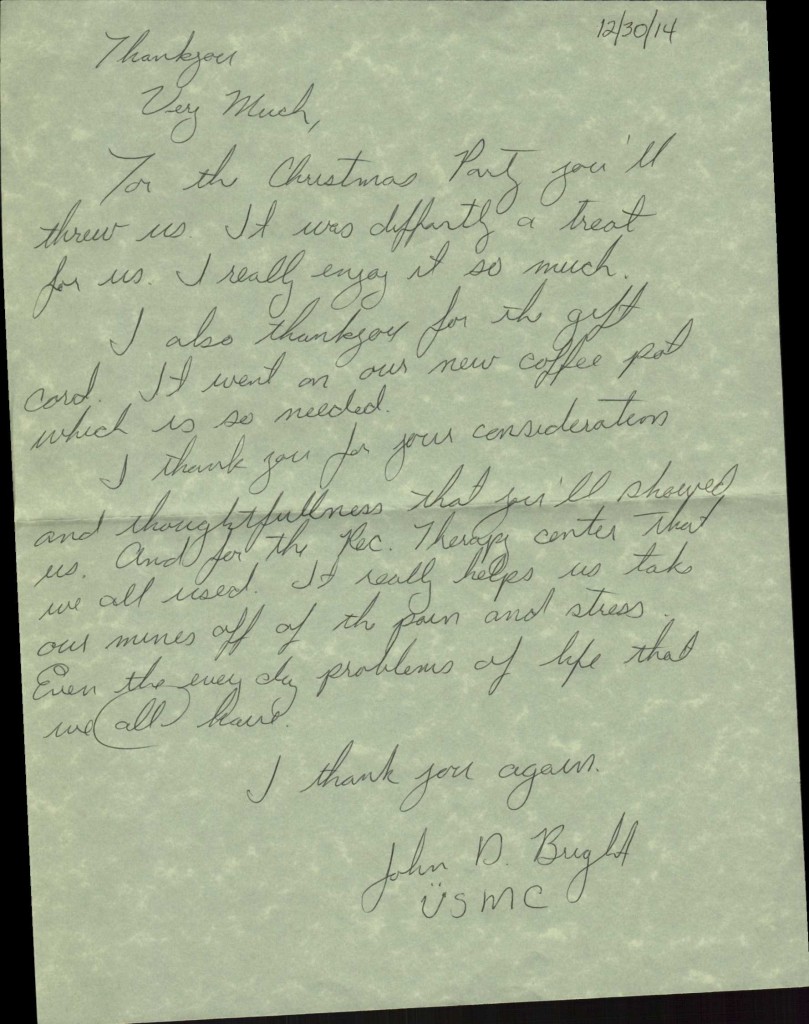 12/30/14
Thankyou
Very Much,
For the Christmas Party you'll
threw us. It was diffantly a treat
for us. I really enjoy it so much.
I also thankyou for the gift
card. It went on our new coffee pot
which is so needed.
I thank you for your consideration
and thoughtfullness that you'll showed
us. And for the Rec. Therapy center that
we all used. It really helps us take
our mines off of the pain and stress.
Even the every day problems of life that
we all have.
I thank you again.
John D. Bright
USMC